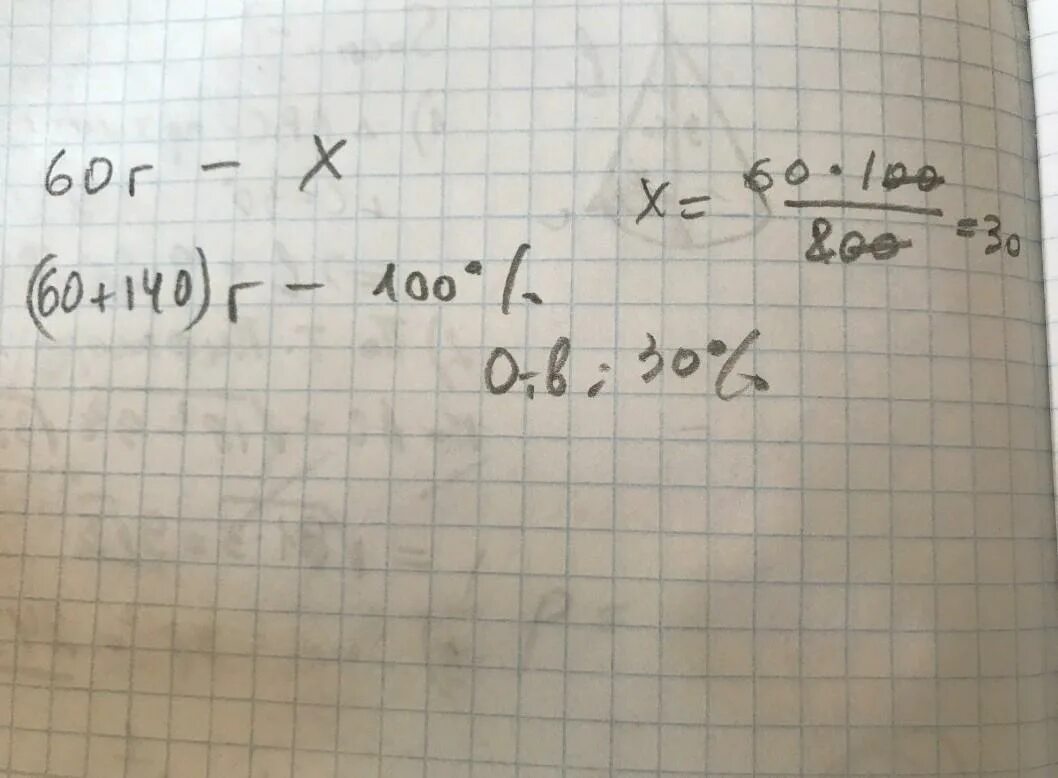 60г – X
(60+140)г – 100%
X = 60·100/200 = 30
О;в: 30%